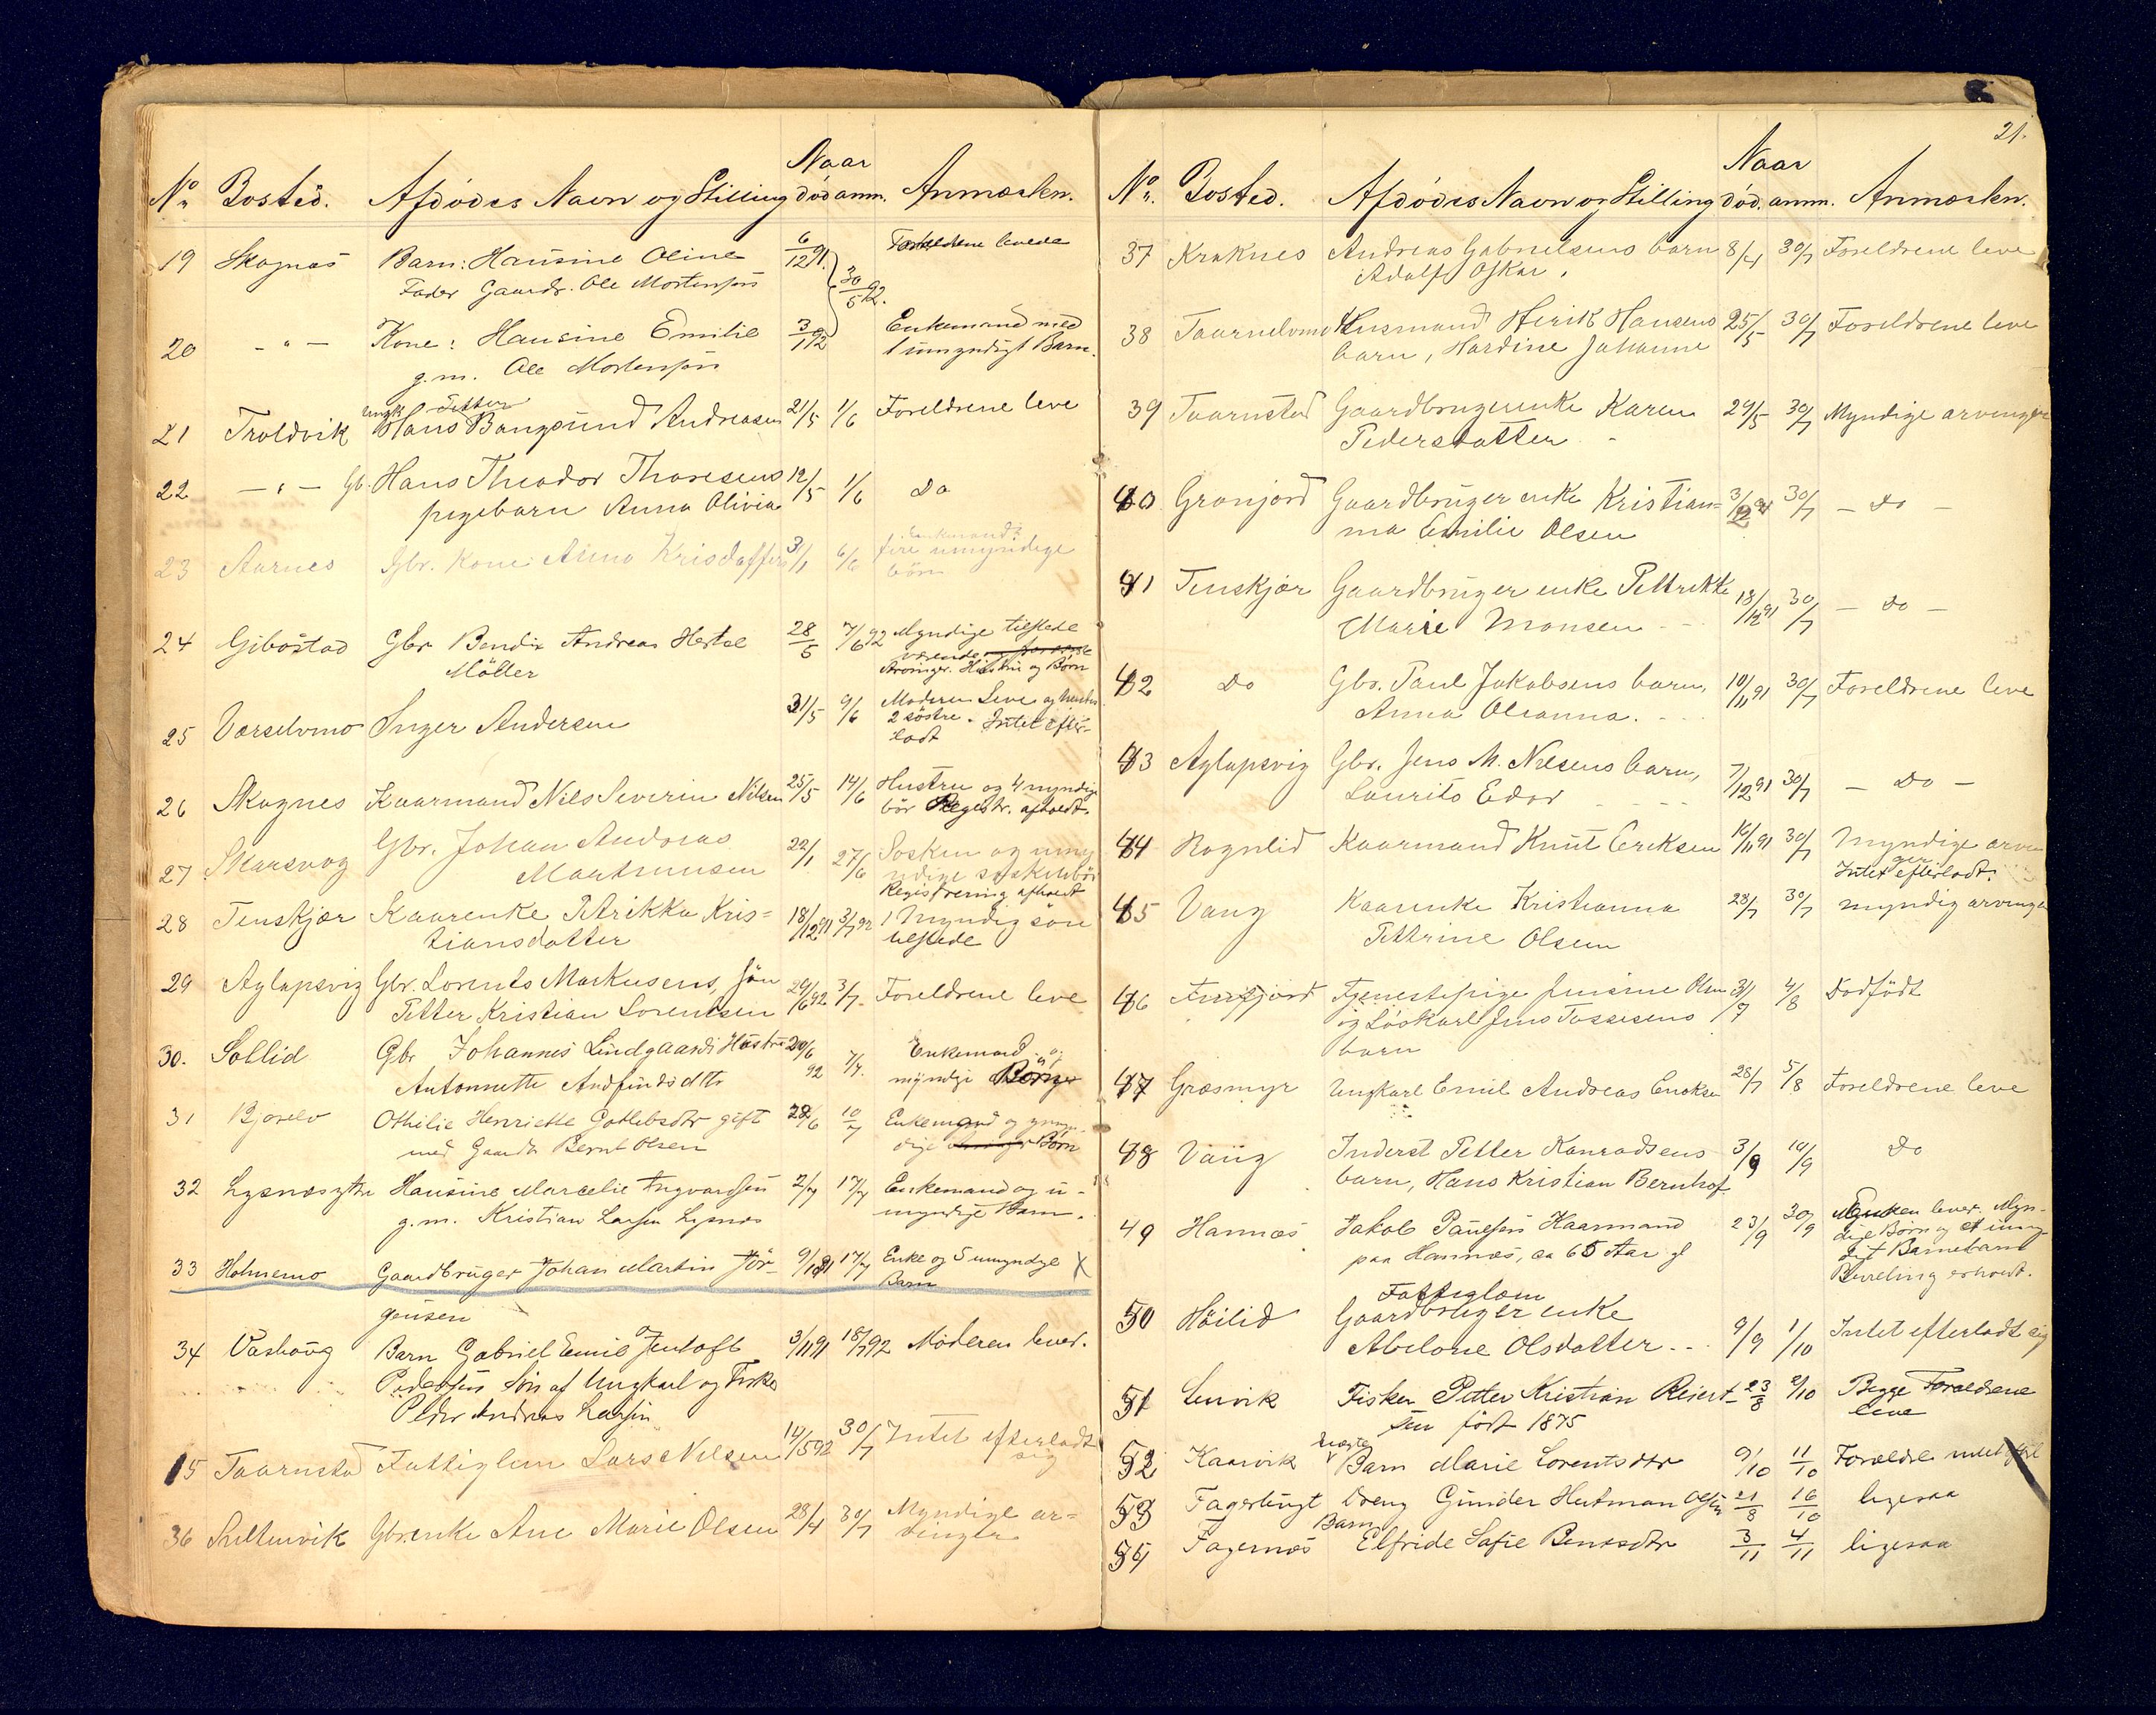 Naar
No Bosted. Afdødes Navn og Stilling død anm. Anmærkn.
19 Skognæs Barn: Hansine Oline 6/12 91. Forældrene levede
Fader Gaardb. Ole Mortensen 30/5 92.
20 - " - Kone: Hansine Emilie 3/1 92 Enkemand med
g.m. Ole Mortensen 1 umyndigt Barn.
21 Troldvik Ungk Petter Hans Bangsund Andreasen 21/5 1/6 Foreldrene leve
22 - " - Gb. Hans Theodor Thoresens 12/5 1/6 Do
pigebarn Anna Olivia
23 Aarnes Gbr. Kone Anna Kristoffers 3/1 6/6 fire umyndige
børn
24 Gibostad Gbr Bendix Andreas Hertel 28/5 7/6 92 Myndige tilstede
Möller værende
Arvinger. Hustru og Børn
25 Vorselvmo Inger Andersen 31/5 9/6 Moderen Leve og
2 söstre. Intet efter-
ladt
26 Skognes Kaarmand Nils Severin Nilsen 25/5 14/6 Hustru og 4 myndige
bör Registr. afholdt.
27 Skarsvog Gbr. Johan Andreas 22/1 27/6 Søsken og umy
Martinusen ndige søskenbör
Registrering afholdt
28 Tenskjær Kaarenke Petrikka Kris= 18/12 91 3/7 92 1 Myndig sön
tiansdatter tilstede
29 Aglapsvig Gbr. Lorents Markusens, Sön 29/6 92 3/7 - Foreldrene leve
Petter Kristian Lorentsen
30. Sollid Gbr Johannes Lindgaards Hustru 20/6 92 7/7. Enkemand og
Antonnette Andfindsdtr myndige Börn
31 Bjorelv Othilie Henriette Gotlebsdtr gift 22/6 10/7 Enkemand og
med Gaardb Bernt Olsen dige Børn
32 Lysnæs ytre Hansine Marcelie Ingvardsen 2/7 17/7 Enkemand og u-
g.m. Kristian Larsen Lysnæs myndige Barn.
33 Holmemo Gaardbruger Johan Martin Jör- 9/12 91 17/7 Enke og 5 umyndge X
Barn
gensen
34 Vashaug Barn Gabriel Emil Jentoft 3/11 91 18/7 92 Moderen lever.
Pedersen Søn af Ungkarl og Fisker
Peder Andreas Larsen
15 Taarnstad Fattiglem Lars Nilsen 14/5 92 30/7 Intet efterladt
sig
36 Sultenvik Gbrenke Ane Marie Olsen 28/4 30/7 Myndige ar=
vinger
21.
Naar
No. Bosted. Afdødes Navn og Stilling død. anm. Anmærkn.
37 Kraknes Andreas Gabrielsens barn 8/4 30/7 Foreldrene leve
Adolf Oskar.
38 Taarnelvmo Husmand Henrik Hansens 25/5 30/7 Foreldrene leve
barn, Hardine Johanne
39 Taarnstad Gaardbrugerenke Karen 29/5 30/7 Myndige arvinger
Pedersdatter -
40 Grønjord Gaardbruger enke Kristian= 3/12 91 30/7 - Do -
na Emilie Olsen
41 Tenskjær Gaardbruger enke Petrikke 18/12 91 30/7 - Do -
Marie Monsen - -
42 Do Gbr. Paul Jakobsens barn, 10/11 91 30/7 Foreldrene leve
Anna Oleanna. - - -
43 Aglapsvig Gbr. Jens M. Nilsens barn, 7/12 91 30/7 - Do -
Laurits Edor - - - -
44 Rognlid Kaarmand Knut Eriksen 16/11 91 30/7 Myndige arvin
ger
Intet efterladt.
45 Vang Kaarenke Kristianna 28/7 30/7 myndig arvinger
Pettrine Olsen
46 Tjenestepige Jensine Olsen 31/7 4/8 Dødfødt
og Løskarl Jens Tossesens
barn
47 Græsmyr Ungkarl Emil Andreas Enoksen 28/7 5/8 Foreldrene leve
48 Vang Inderst Petter Konradsens 3/9 10/9 Do
barn, Hans Kristian Bernhof
49 Hannæs Jakob Paulsen Kaarmand 23/9 30/9 Enken lever. Myn-
paa Hannæs, ca 65 Aar gl dige Børn og et umyn
digt Barnebarn
50 Höilid Fattiglem
Gaardbruger enke
Abelone Olsdatter. - - 9/9 1/10 Intet efterladt sig
51 Lenvik Fisker Petter Kristian Reiert- 23/8 2/10 Begge Forældrene
sen født 1875 leve
52 Kaarvik Barn Marie Lorentsdtr 9/10 11/10 Forældre
53 Fagerlingt Dreng Gunder Hertman Olsen 21/8 16/10 ligesaa
54 Fagernæs Barn Elfride Sofie Bentsdtr 3/11 4/11 ligesaa